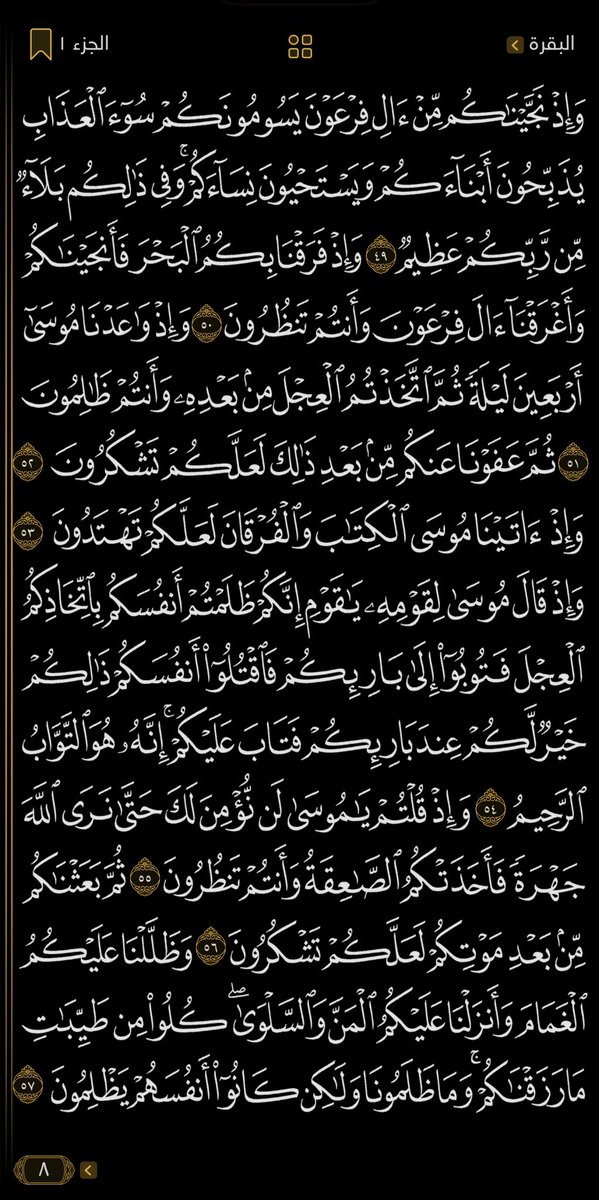 البقرة
الجزء ١
وَإِذْ نَجَّيْنَٰكُم مِّنْ ءَالِ فِرْعَوْنَ يَسُومُونَكُمْ سُوٓءَ ٱلْعَذَابِ
يُذَبِّحُونَ أَبْنَآءَكُمْ وَيَسْتَحْيُونَ نِسَآءَكُمْ ۚ وَفِى ذَٰلِكُم بَلَآءٌ
مِّن رَّبِّكُمْ عَظِيمٌ ٤٩ وَإِذْ فَرَقْنَا بِكُمُ ٱلْبَحْرَ فَأَنجَيْنَٰكُمْ
وَأَغْرَقْنَآ ءَالَ فِرْعَوْنَ وَأَنتُمْ تَنظُرُونَ ٥٠ وَإِذْ وَٰعَدْنَا مُوسَىٰٓ
أَرْبَعِينَ لَيْلَةً ثُمَّ ٱتَّخَذْتُمُ ٱلْعِجْلَ مِنۢ بَعْدِهِۦ وَأَنتُمْ ظَٰلِمُونَ
٥١ ثُمَّ عَفَوْنَا عَنكُم مِّنۢ بَعْدِ ذَٰلِكَ لَعَلَّكُمْ تَشْكُرُونَ ٥٢
وَإِذْ ءَاتَيْنَا مُوسَى ٱلْكِتَٰبَ وَٱلْفُرْقَانَ لَعَلَّكُمْ تَهْتَدُونَ ٥٣
وَإِذْ قَالَ مُوسَىٰ لِقَوْمِهِۦ يَٰقَوْمِ إِنَّكُمْ ظَلَمْتُمْ أَنفُسَكُم بِٱتِّخَاذِكُمُ
ٱلْعِجْلَ فَتُوبُوٓا۟ إِلَىٰ بَارِئِكُمْ فَٱقْتُلُوٓا۟ أَنفُسَكُمْ ذَٰلِكُمْ
خَيْرٌ لَّكُمْ عِندَ بَارِئِكُمْ فَتَابَ عَلَيْكُمْ ۚ إِنَّهُۥ هُوَ ٱلتَّوَّابُ
ٱلرَّحِيمُ ٥٤ وَإِذْ قُلْتُمْ يَٰمُوسَىٰ لَن نُّؤْمِنَ لَكَ حَتَّىٰ نَرَى ٱللَّهَ
جَهْرَةً فَأَخَذَتْكُمُ ٱلصَّٰعِقَةُ وَأَنتُمْ تَنظُرُونَ ٥٥ ثُمَّ بَعَثْنَٰكُم
مِّنۢ بَعْدِ مَوْتِكُمْ لَعَلَّكُمْ تَشْكُرُونَ ٥٦ وَظَلَّلْنَا عَلَيْكُمُ
ٱلْغَمَامَ وَأَنزَلْنَا عَلَيْكُمُ ٱلْمَنَّ وَٱلسَّلْوَىٰ ۖ كُلُوا۟ مِن طَيِّبَٰتِ
مَا رَزَقْنَٰكُمْ ۚ وَمَا ظَلَمُونَا وَلَٰكِن كَانُوٓا۟ أَنفُسَهُمْ يَظْلِمُونَ ٥٧
٨